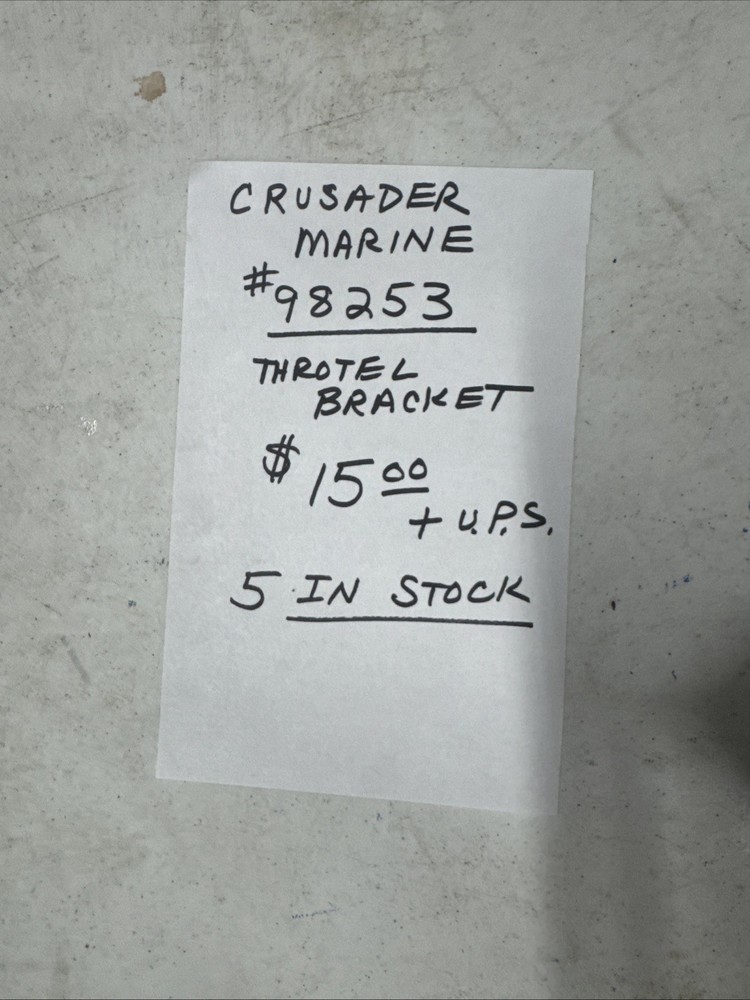 CRUSADER
MARINE
#98253
THROTEL
BRACKET
$ 15 00
+ U.P.S.
5 IN STOCK